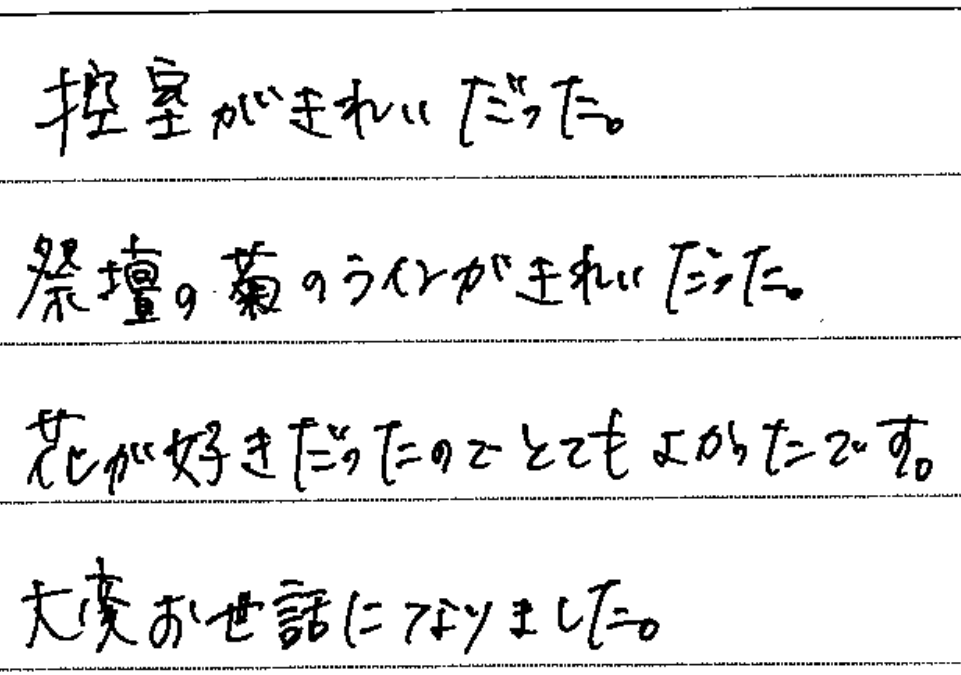 控室がきれいだった。
祭壇の菊のラインがきれいだった。
花が好きだったのでとてもよかったです。
大変お世話になりました。